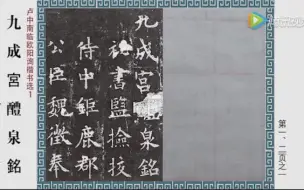 腾讯视频
第一、二页之一
九成宫醴泉銘
秘書監撿校
侍中鉅鹿郡
公臣魏徵奉
卢中南临欧阳询楷书选1
九成宮醴泉銘